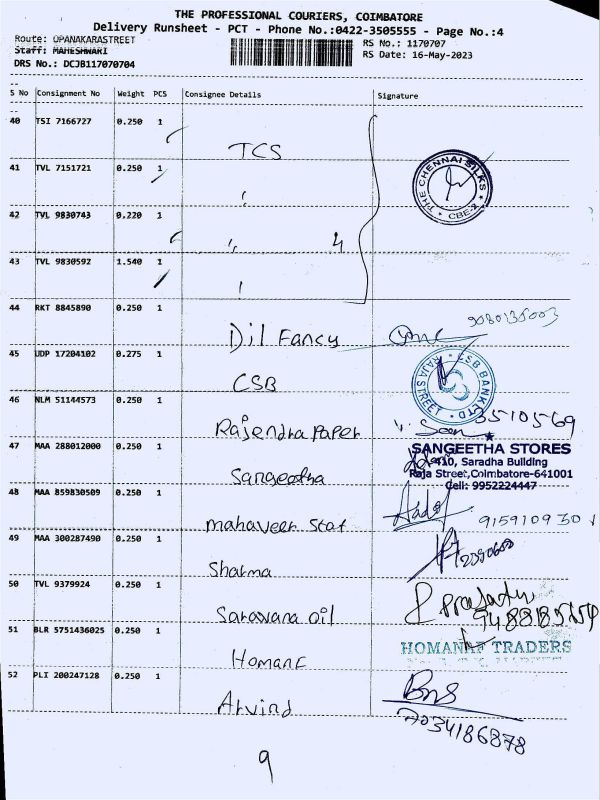 THE PROFESSIONAL COURIERS, COIMBATORE
Delivery Runsheet - PCT - Phone No.:0422-3505555 - Page No.:4
Route: OPANAKARASTREET
RS No.: 1170707
Staff: MAHESHWARI
RS Date: 16-May-2023
DRS No.: DCJB117070704
S No Consignment No Weight PCS Consignee Details Signature
40 TSI 7166727 0.250 1
TCS
41 TVL 7151721 0.250 1
THE CHENNAI SILKS
CBE-2
42 TVL 9830743 0.220 1
4
43 TVL 9830592 1.540 1
44 RKT 8845890 0.250 1
Dil Fancy
45 UDP 17204102 0.275 1
CSB
CSB BANK LTD
RAJA STREET
46 NLM 51144573 0.250 1
Rajendra Paper
3510569
47 MAA 288012000 0.250 1
SANGEETHA STORES
410, Saradha Building
Raja Street,Coimbatore-641001
Cell: 9952224447
Sangeetha
48 MAA 859830509 0.250 1
mahaveer Stat
49 MAA 300287490 0.250 1
Sharma
50 TVL 9379924 0.250 1
Saravana oil
51 BLR 5751436025 0.250 1
HOMANAF TRADERS
Homanf
52 PLI 200247128 0.250 1
Arvind
7034186878
9